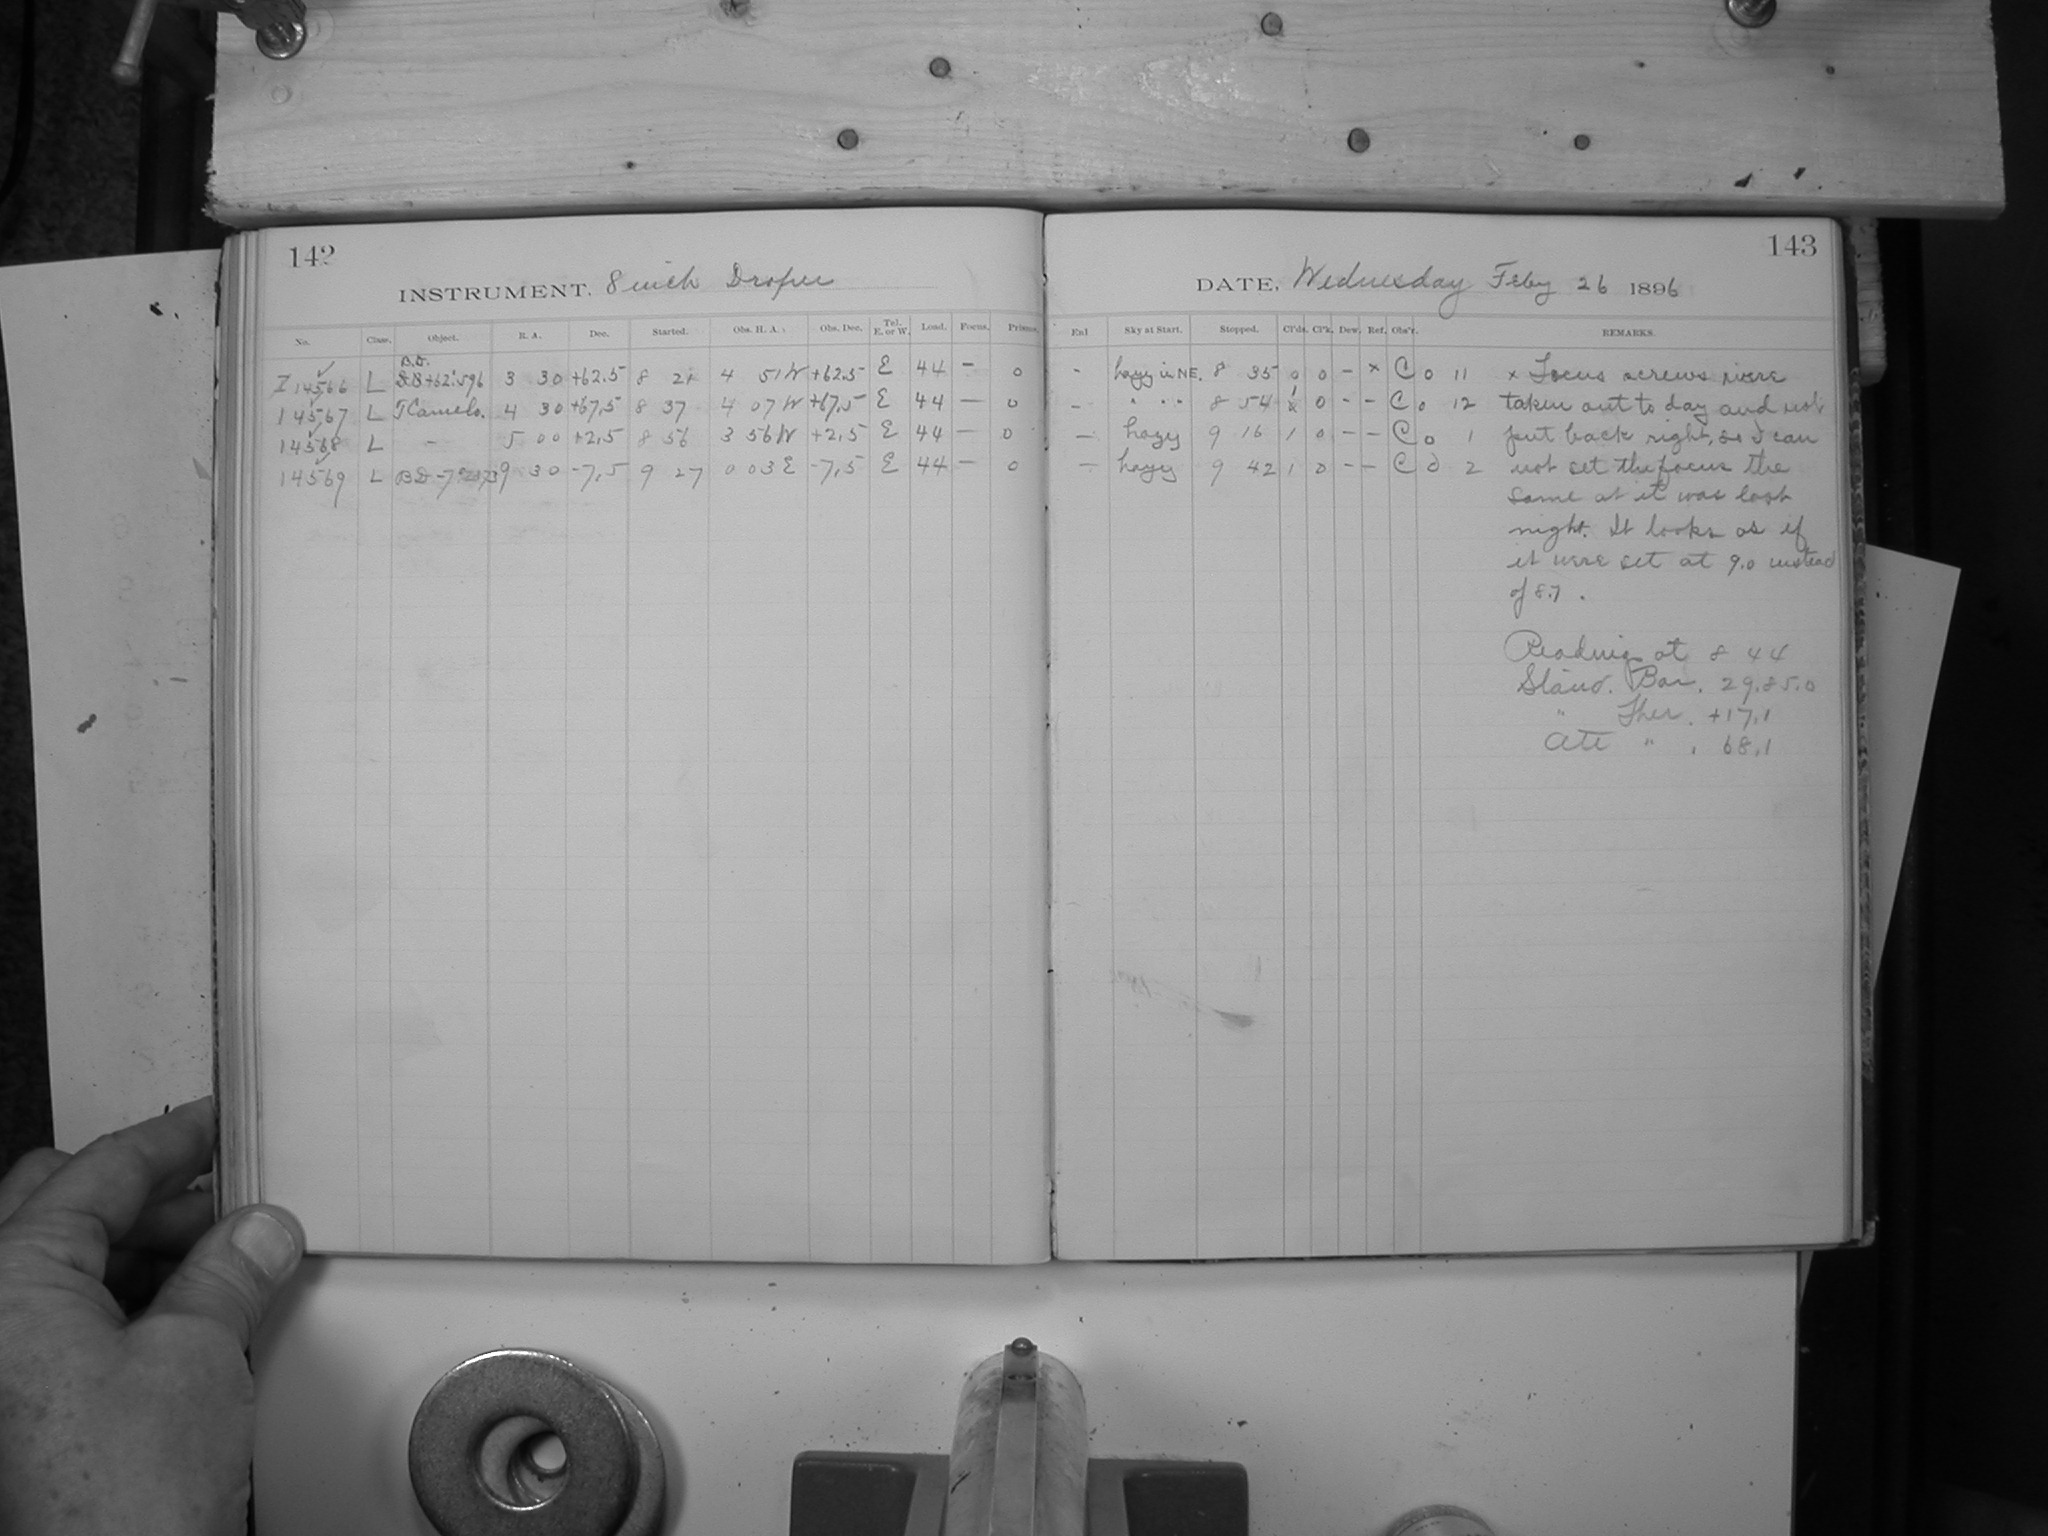 142
INSTRUMENT. 8 inch Draper
No. Class. Object. R. A. Dec. Started. Obs. H. A. Obs. Dec. Tel. E. or W. Load. Focus. Prisms.
B.D.
I 14566 L +62°.596 3 30 +62.5 8 21 4 51 W +62.5 E 44 — 0
14567 L T Camelo. 4 30 +67,5 8 37 4 07 W +67,5 E 44 — 0
14568 L – 5 00 +2,5 8 56 3 56 W +2,5 E 44 — 0
14569 L BD -7° 9 30 -7,5 9 27 0 03 E -7,5 E 44 — 0
143
DATE, Wednesday Feby 26 1896
Enl Sky at Start. Stopped. Cl'ds. Cl'k. Dew. Ref. Obs'r. REMARKS.
- hazy in NE. 8 35 0 0 - x C 0 11 x Focus screws were
- " " " 8 54 1 0 - - C 0 12 taken out to day and not
— hazy 9 16 1 0 - - C 0 1 put back right, so I can
— hazy 9 42 1 0 - - C 0 2 not set the focus the
same at it was last
night. It looks as if
it were set at 9.0 instead
of 8.7 .
Reading at 8 44
Stand. Bar. 29.85.0
" Ther. +17.1
Att " . 68.1